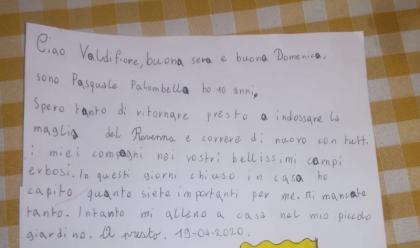 Ciao Valdifiore, buona sera e buona Domenica,
sono Pasquale Palombella ho 10 anni,
Spero tanto di ritornare presto a indossare la
maglia del Ravenna e correre di nuovo con tutti
i miei compagni nei vostri bellissimi campi
erbosi. In questi giorni chiuso in casa ho
capito quanto siete importanti per me. Mi mancate
tanto. Intanto mi alleno a casa nel mio piccolo
giardino. A presto. 19-04-2020.